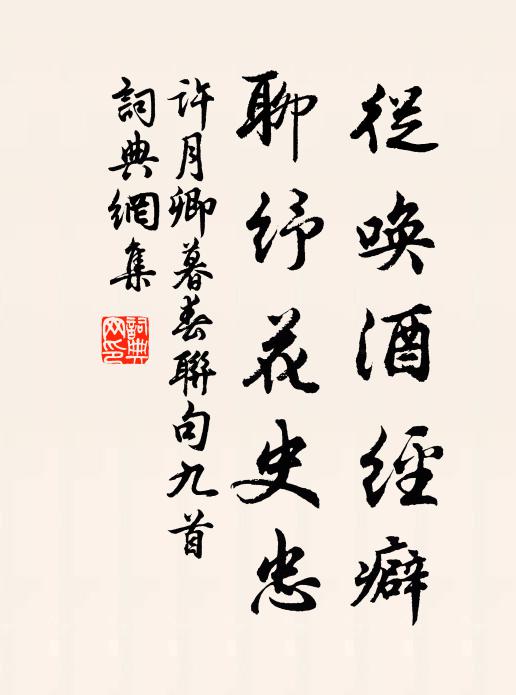 從喚酒經癖
聊紓花史忠
許月卿暮春聯句九首
詞典網集
詞典網印